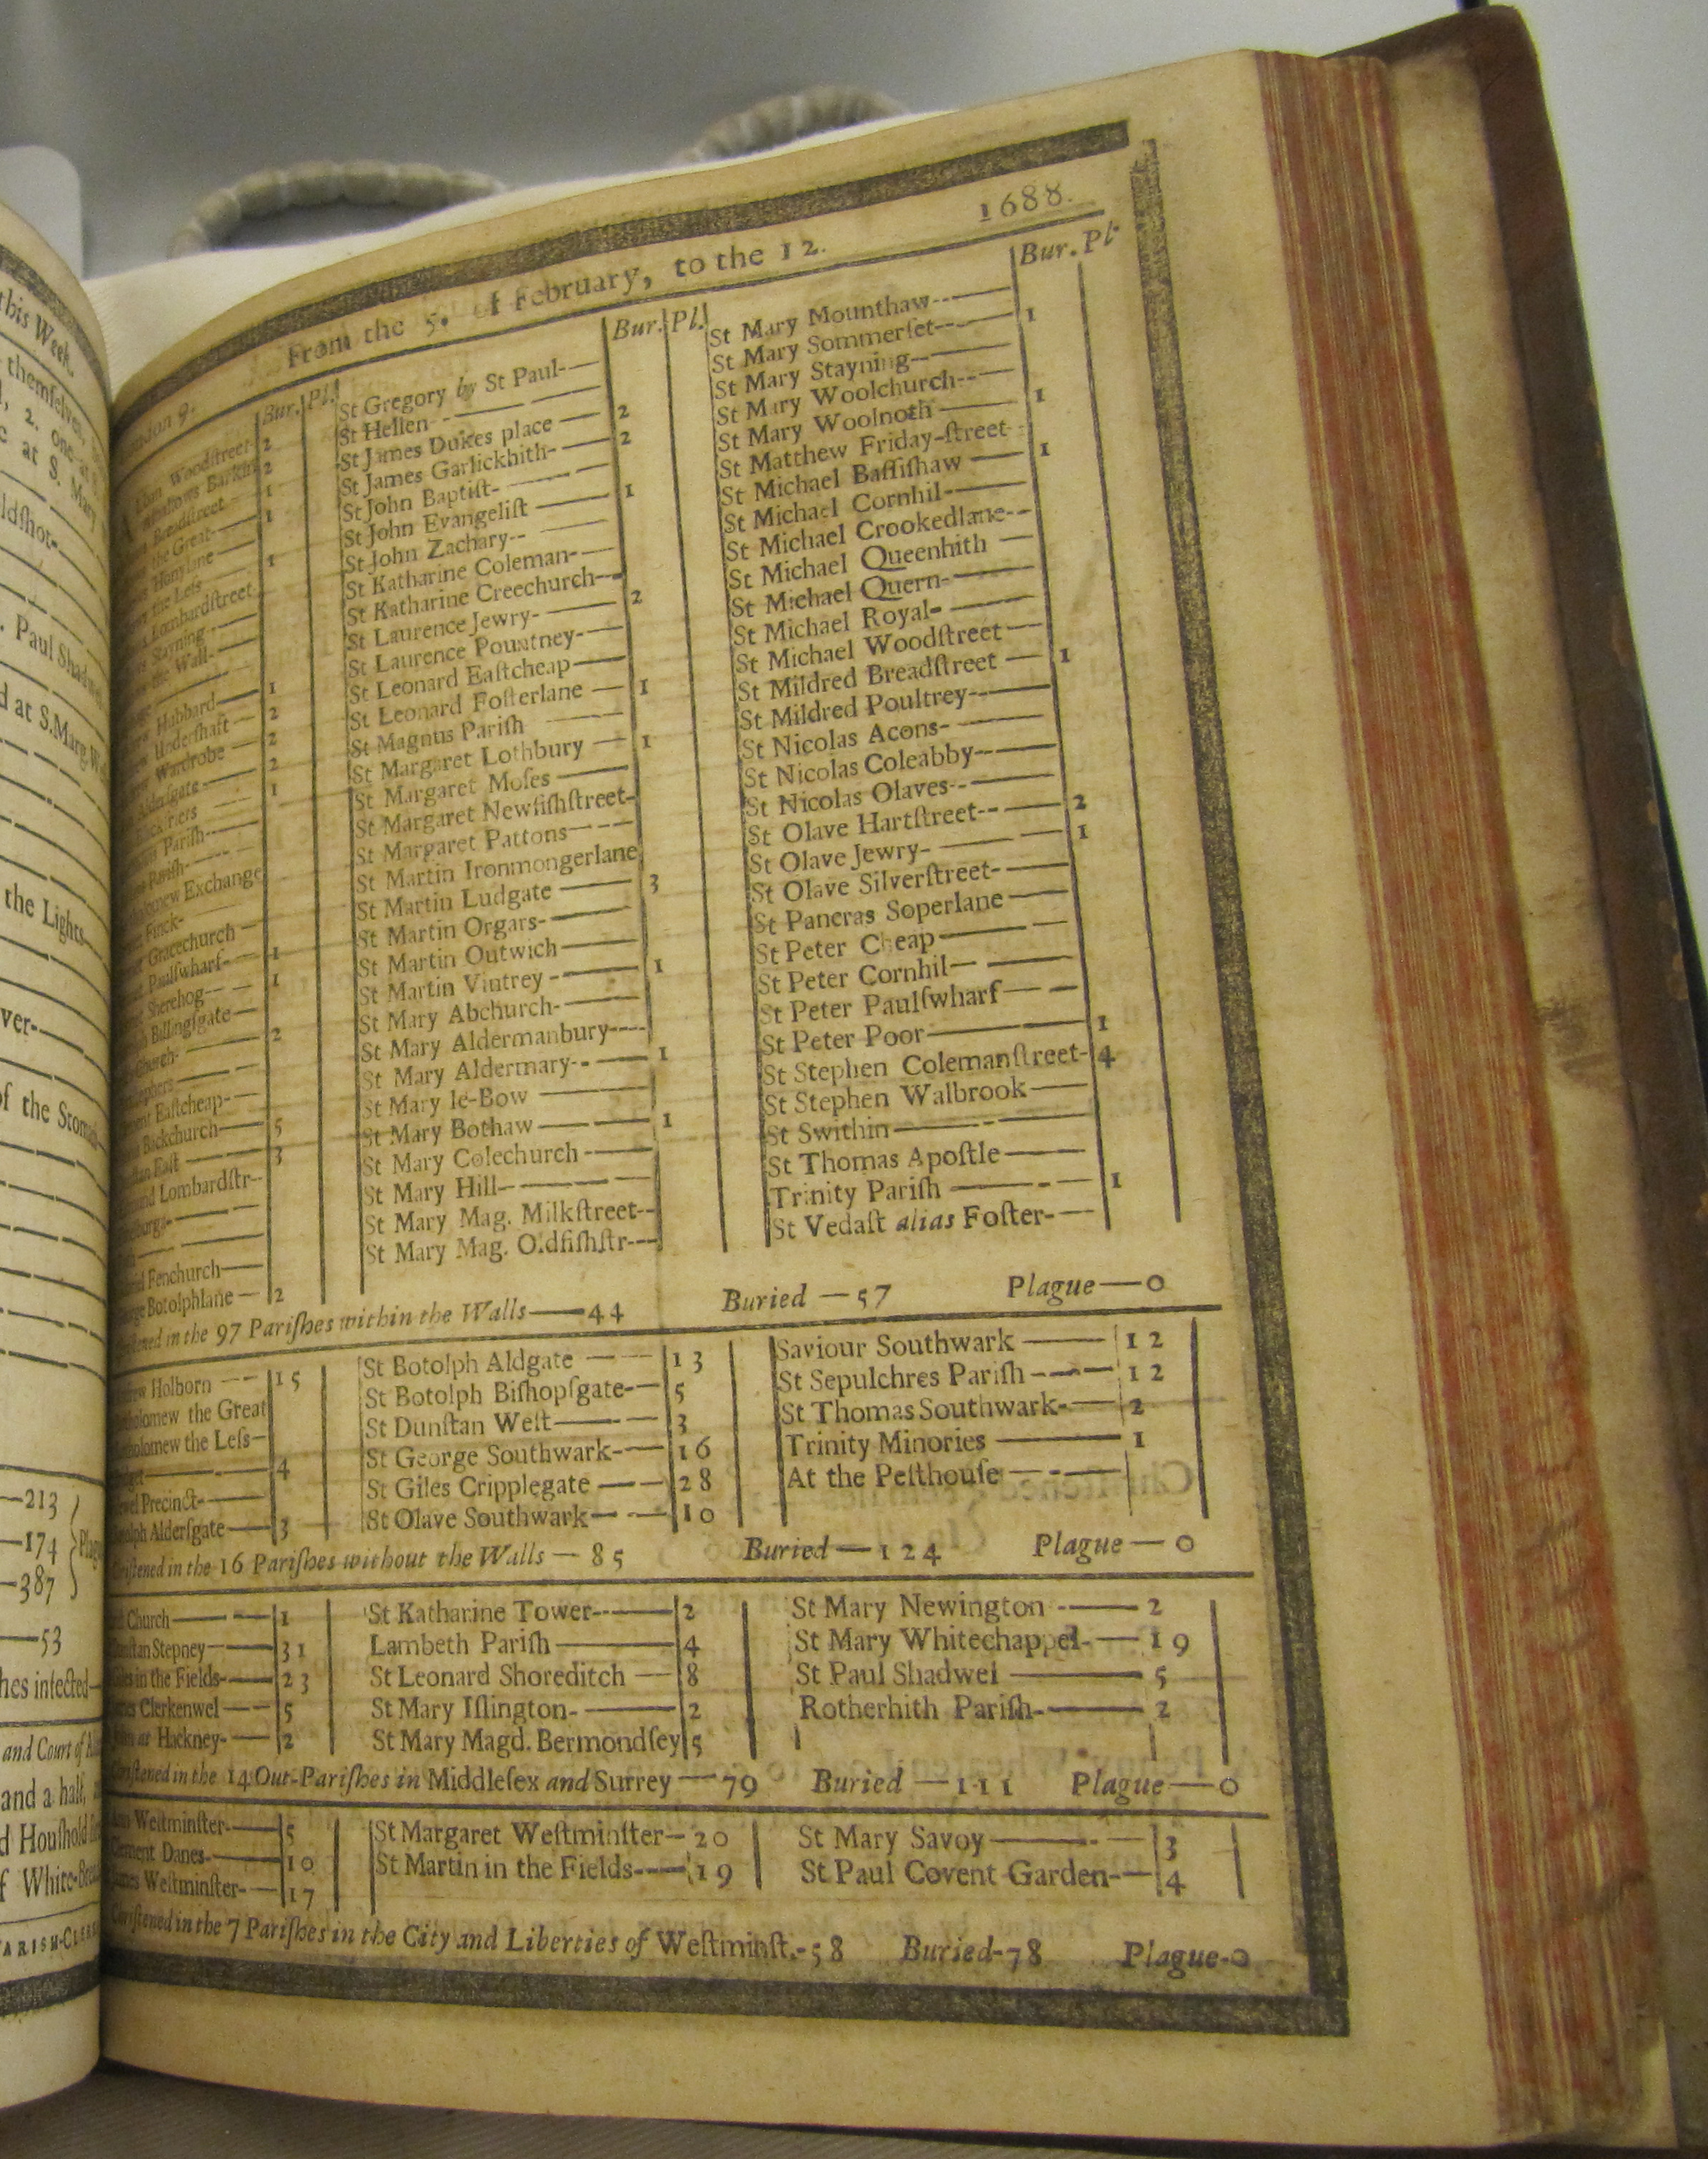 this Week.
themselves,
2. one at
at S. Mary
ldſhot-
Paul Shadwel
d at S. Marg.
the Lights
ver-
of the Stomach
—213
—174
—387
Plag
—53
hes infected—
and Court of
and a half,
d Houſhold
f White-Brea
ARISH-CLER
From the 5. of February, to the 12. 1688.
Bur. Pl.
Woodſtreet- 2
Barkin 2
Breadſtreet — 1
the Great— 1
Honilane —
the Leſs — 1
Lombardſtreet
Stayning —
the Wall-
Hubbard— 1
Underſhaft — 2
Wardrobe — 2
Alderſgate— 2
1
Pariſh—
Pariſh—
Exchange
Finck-
Gracechurch —
Paulſwharf— 1
Sherehog— 1
Billingſgate—
Church- 2
Eaſtcheap-
Backchurch— 5
Eaſt — 3
Lombardſtr-
Fenchurch—
Botolphlane — 2
Bur. Pl.
St Gregory by St Paul-
St Hellen-
St James Dukes place — 2
St James Garlickhith- — 2
St John Baptiſt-
St John Evangeliſt — 1
St John Zachary--
St Katharine Coleman-
St Katharine Creechurch—
St Laurence Jewry- — 2
St Laurence Pountney-
St Leonard Eaſtcheap—
St Leonard Foſterlane — 1
St Magnus Pariſh
St Margaret Lothbury — 1
St Margaret Moſes —
St Margaret Newfiſhſtreet-
St Margaret Pattons—
St Martin Ironmongerlane
St Martin Ludgate — 3
St Martin Orgars-
St Martin Outwich —
St Martin Vintrey - — 1
St Mary Abchurch-
St Mary Aldermanbury—
St Mary Aldermary- — 1
St Mary le-Bow —
St Mary Bothaw — 1
St Mary Colechurch -
St Mary Hill-
St Mary Mag. Milkſtreet--
St Mary Mag. Oldfiſhſtr—
Bur. Pl.
St Mary Mounthaw--
St Mary Sommerſet— 1
St Mary Stayning--
St Mary Woolchurch--
St Mary Woolnoth — 1
St Matthew Friday-ſtreet-
St Michael Baſſiſhaw — 1
St Michael Cornhil-
St Michael Crookedlane--
St Michael Queenhith —
St Michael Quern-
St Michael Royal-
St Michael Woodſtreet —
St Mildred Breadſtreet — 1
St Mildred Poultrey—
St Nicolas Acons-
St Nicolas Coleabby--
St Nicolas Olaves--
St Olave Hartſtreet-- — 2
St Olave Jewry- — 1
St Olave Silverſtreet-
St Pancras Soperlane —
St Peter Cheap—
St Peter Cornhil—
St Peter Paulſwharf —
St Peter Poor— 1
St Stephen Colemanſtreet- 4
St Stephen Walbrook —
St Swithin—
St Thomas Apoſtle—
Trinity Pariſh — 1
St Vedaſt alias Foſter-
in the 97 Pariſhes within the Walls—44 Buried —57 Plague—0
Holborn — 15
the Great
the Leſs—
4
Precinct-
Alderſgate— 3
St Botolph Aldgate — 13
St Botolph Biſhopſgate- 5
St Dunſtan Weſt— 3
St George Southwark- 16
St Giles Cripplegate — 28
St Olave Southwark — 10
Saviour Southwark — 12
St Sepulchres Pariſh — 12
St Thomas Southwark- 2
Trinity Minories — 1
At the Peſthouſe —
in the 16 Pariſhes without the Walls — 85 Buried—124 Plague—0
Church — 1
Stepney— 31
in the Fields- 23
Clerkenwel — 5
at Hackney- 2
St Katharine Tower— 2
Lambeth Pariſh — 4
St Leonard Shoreditch — 8
St Mary Iſlington- 2
St Mary Magd. Bermondſey 5
St Mary Newington — 2
St Mary Whitechappel- 19
St Paul Shadwel — 5
Rotherhith Pariſh- 2
in the 14 Out-Pariſhes in Middleſex and Surrey — 79 Buried —111 Plague—0
Weſtminſter- 5
Danes- 10
Weſtminſter- 17
St Margaret Weſtminſter— 20
St Martin in the Fields— 19
St Mary Savoy— 3
St Paul Covent Garden- 4
in the 7 Pariſhes in the City and Liberties of Weſtminſt.-58 Buried-78 Plague-0